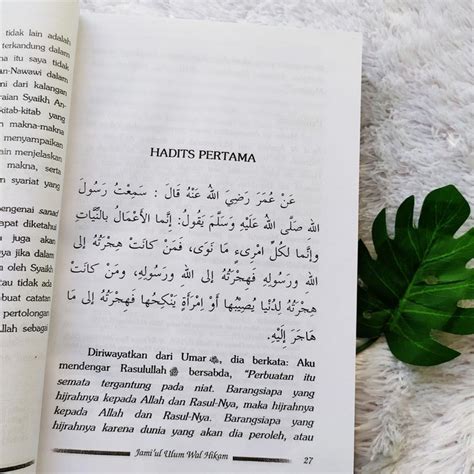 tidak lain adalah
terkandung dalam
na itu saya tidak
n-Nawawi dalam
mi dari kalangan
raian Syaikh An-
kitab-kitab yang
makna-makna
menyampaikan
lain menjelaskan
makna, serta
syariat yang
engenai sanad
apat diketahui
juga akan
ya jika dalam
oleh Syaikh
tau tidak ada
buat catatan
pertolongan
Allah sebagai
HADITS PERTAMA
عَنْ عُمَرَ رَضِيَ اللهُ عَنْهُ قَالَ : سَمِعْتُ رَسُولَ
اللهِ صَلَّى اللهُ عَلَيْهِ وَسَلَّمَ يَقُولُ: إِنَّمَا الْأَعْمَالُ بِالنِّيَّاتِ
وَإِنَّمَا لِكُلِّ امْرِىءٍ مَا نَوَى، فَمَنْ كَانَتْ هِجْرَتُهُ إِلَى
اللهِ وَرَسُولِهِ فَهِجْرَتُهُ إِلَى اللهِ وَرَسُولِهِ، وَمَنْ كَانَتْ
هِجْرَتُهُ لِدُنْيَا يُصِيْبُهَا أَوِ امْرَأَةٍ يَنْكِحُهَا فَهِجْرَتُهُ إِلَى مَا
هَاجَرَ إِلَيْهِ.
Diriwayatkan dari Umar, dia berkata: Aku
mendengar Rasulullah ﷺ bersabda, "Perbuatan itu
semata tergantung pada niat. Barangsiapa yang
hijrahnya kepada Allah dan Rasul-Nya, maka hijrahnya
kepada Allah dan Rasul-Nya. Barangsiapa yang
hijrahnya karena dunia yang akan dia peroleh, atau
Jami'ul Ulum Wal Hikam
27